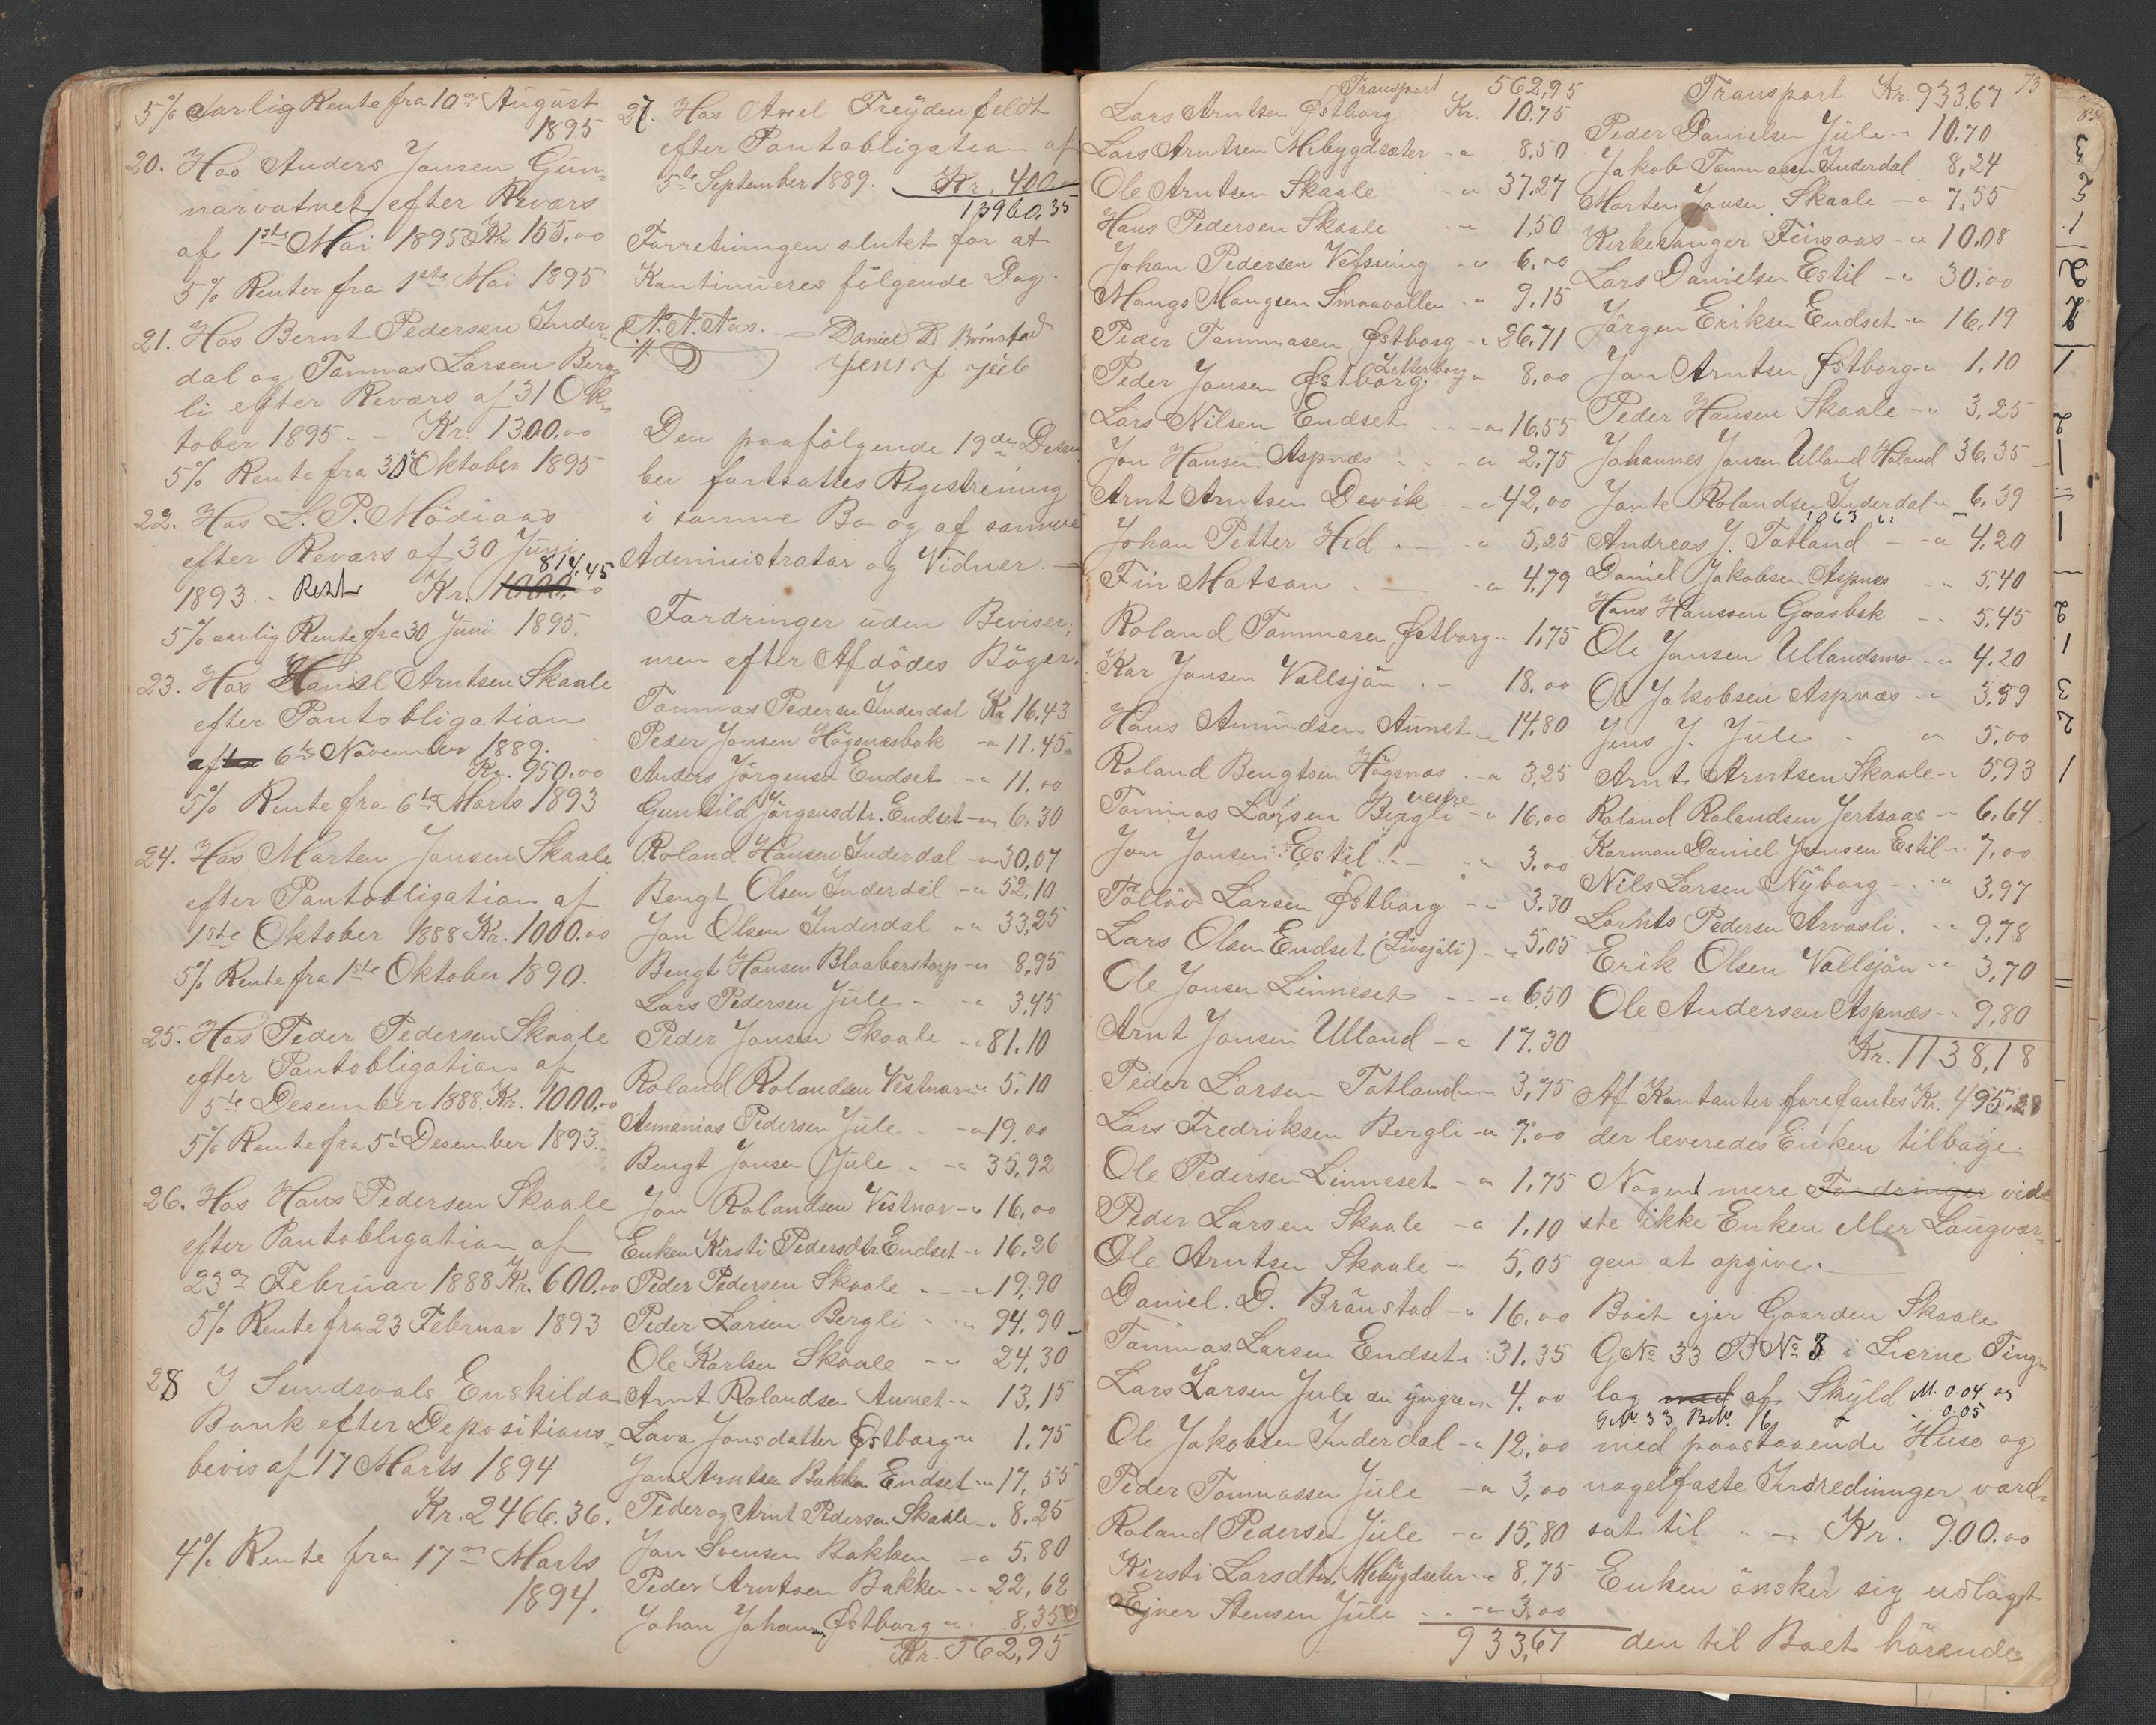 5% Aarlig Rente fra 10de August
1895
20. Hos Anders Jonsen Gun-
narvatnet efter Revers
af 1ste Mai 1895 Kr. 155,00
5% Renter fra 1ste Mai 1895
21. Hos Bernt Pedersen Inder-
dal og Tommas Larsen Berg-
li efter Revers af 31 Ok-
tober 1895 - - Kr. 1300,00
5% Rente fra 30te Oktober 1895
22. Hos L. P. Mödiaas
efter Revers af 30 Juni
814,45
1893 - Rest Kr. 1000,00
5% aarlig Rente fra 30 Juni 1895.
23. Hos Daniel Arntsen Skaale
efter Pantobligation
af 6te November 1889.
Kr. 950,00
5% Rente fra 6te Marts 1893
24. Hos Morten Jonsen Skaale
efter Pantobligation af
1ste Oktober 1888 Kr. 1000,00
5% Rente fra 1ste Oktober 1890.
25. Hos Peder Pedersen Skaale
efter Pantobligation af
5te Desember 1888. Kr. 1000,00
5% Rente fra 5te Desember 1893.
26. Hos Hans Pedersen Skaale
efter Pantobligation af
23de Februar 1888 Kr. 600,00
5% Rente fra 23 Februar 1893
28 I Sundsvals Enskilda
Bank efter Depositions-
bevis af 17 Marts 1894
Kr. 2466,36.
4% Rente fra 17de Marts
1894.
27. Hos Axel Freÿdenfeldt
efter Pantobligation af
5te September 1889. Kr. 400
13960,35
Forretningen slutet for at
Kontinueres følgende Dag.
N. N. Aas. Daniel D. Brönstad
Jens J Jule
Den paafölgende 19de Desem
ber fortsattes Registrering
i samme Bo og af samme
Administrator og Vidner. -
Fordringer uden Beviser;
men efter Afdödes Böger.
Tommas Pedersen Inderdal Kr 16,43
Peder Jonsen Högsnæsbak -" 11,45
Anders Jörgensen Endset -" 11,00
Gunhild Jörgensdtr. Endset -" 6,30
Roland Hansen Inderdal -" 30,07
Bengt Olsen Inderdal -" 52,10
Jon Olsen Inderdal -" 33,25
Bengt Hansen Blaaberstorp -" 8,95
Lars Pedersen Jule - -" 3,45
Peder Jonsen Skaale -" 81,10
Roland Rolandsen Vestnor -" 5,10
Annanias Pedersen Jule - -" 19,00
Bengt Jonsen Jule - -" 35,92
Jon Rolandsen Vestnor -" 16,00
Enken Kirsti Pedersdtr. Endset -" 16,26
Peder Pedersen Skaale - -" 19,90
Peder Larsen Bergli - -" 94,90
Ole Karlsen Skaale -" 24,30
Arnt Rolandsen Aunet -" 13,15
Lava Jonsdatter Østborg -" 1,75
Jon Arntsen Bakken Endset -" 17,55
Peder og Arnt Pedersen Skaale -" 8,25
Jon Svensen Bakken -" 5,80
Peder Arntsen Bakken -" 22,62
Johan Johans Østborg -" 8,35
Kr. 562,95
Transport 562,95
Lars Arntsen Østborg Kr. 10,75
Lars Arntsen Mebygdsæter -" 8,50
Ole Arntsen Skaale -" 37,27
Hans Pedersen Skaale -" 1,50
Johan Pedersen Vefsning -" 6,00
Mangs Mangsen Smaavollen -" 9,15
Peder Tommasen Østborg -" 26,71
Zetterborg
Peder Jonsen Østborg -" 8,00
Lars Nilsen Endset - -" 16,55
Jon Hansen Aspnæs - -" 2,75
Arnt Arntsen Devik -" 42,00
Johan Petter Hed - -" 5,25
Fin Matson - -" 4,79
Roland Tommasen Østborg -" 1,75
Kar Jonsen Vallsjön - 18,00
Hans Amundsen Aunet -" 14,80
Roland Bengtsen Högsnæs -" 3,25
vestre
Tommas Larsen Bergli -" 16,00
Jon Jonsen Estil - -" 3,00
Tolløv Larsen Østborg -" 3,30
Lars Olsen Endset (Lövsjöli) -" 5,05
Ole Jonsen Linneset - -" 6,50
Arnt Jonsen Ulland -" 17,30
Peder Larsen Totland -" 3,75
Lars Fredriksen Bergli -" 7,00
Ole Pedersen Linneset -" 1,75
Peder Larsen Skaale -" 1,10
Ole Arntsen Skaale -" 5,05
Daniel. D. Brönstad -" 16,00
Tommas Larsen Endset -" 31,35
Lars Larsen Jule den yngre -" 4,00
Ole Jakobsen Inderdal -" 12,00
Peder Tommassen Jule -" 3,00
Roland Pedersen Jule -" 15,80
Kirsti Larsdtr. Mebygdseter -" 8,75
Ejner Stensen Jule - -" 3,00
933,67
73
Transport Kr. 933,67
Peder Danielsen Jule -" 10,70
Jakob Tommasen Inderdal 8,24
Morten Jonsen Skaale -" 7,55
Kirkesanger Finsaas -" 10,08
Lars Danielsen Estil -" 30,00
Jörgen Eriksen Endset -" 16,19
Jon Arntsen Østborg -" 1,10
Peder Hansen Skaale -" 3,25
Johannes Jonsen Ulland Holand 36,35
Jonte Rolandsen Inderdal -" 6,39
1063
Andreas J. Totland - -" 4,20
Daniel Jakobsen Aspnæs - 5,40
Hans Hansen Gaasbak - 5,45
Ole Jonsen Ullandsmo -" 4,20
Ole Jakobsen Aspnæs -" 3,59
Jens J. Jule - " 5,00
Arnt Arntsen Skaale -" 5,93
Roland Rolandsen Jertsaas -" 6,64
Korman Daniel Jonsen Estil -" 7,00
Nils Larsen Nÿborg - -" 3,97
Lornts Pedersen Arvasli. -" 9,78
Erik Olsen Vallsjön -" 3,70
Ole Andersen Aspnæs -" 9,80
Kr. 1138,18
Af Kontanter forefantes Kr. 495,28
der leveredes Enken tilbage.
Noget mere Fordringer vid-
ste ikke Enken eller Laugvær-
gen at opgive.
Boet ejer Gaarden Skaale
GNo 33 BNo 3 i Lierne Ting-
lag med af Skÿld M. 0.04 og
GNo. 33 BNo. 16 0.05
med paastaaende Huse og
nagelfaste Indredninger værd-
sat til - - Kr. 900,00
Enken önsker sig udlagt
den til Boet hörende